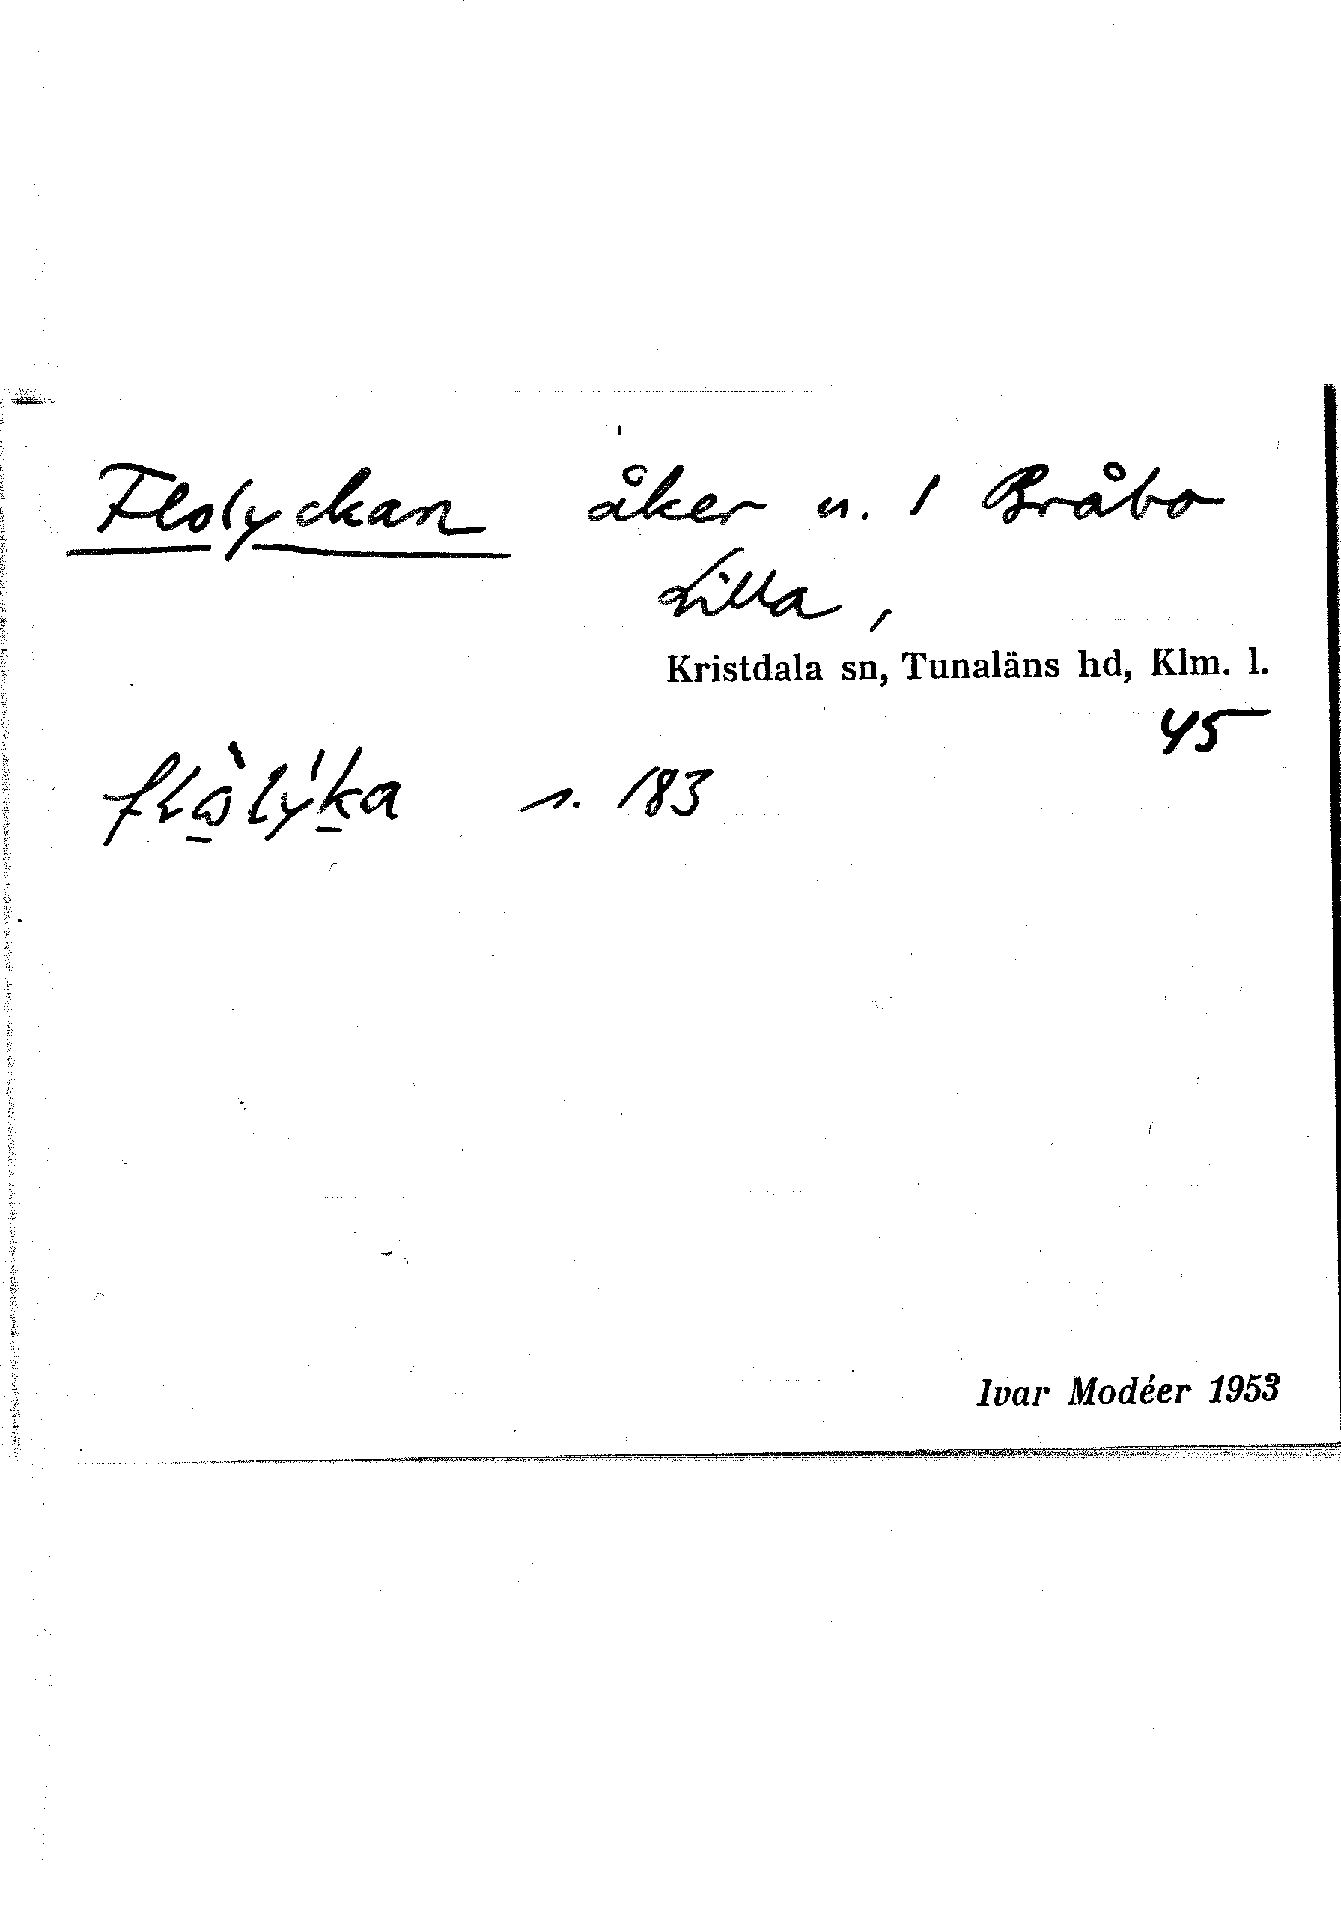 Flolyckan åker n. 1 Bråbo
Lilla,
Kristdala sn, Tunaläns hd, Klm. l.
45
s. 183
Ivar Modéer 1953